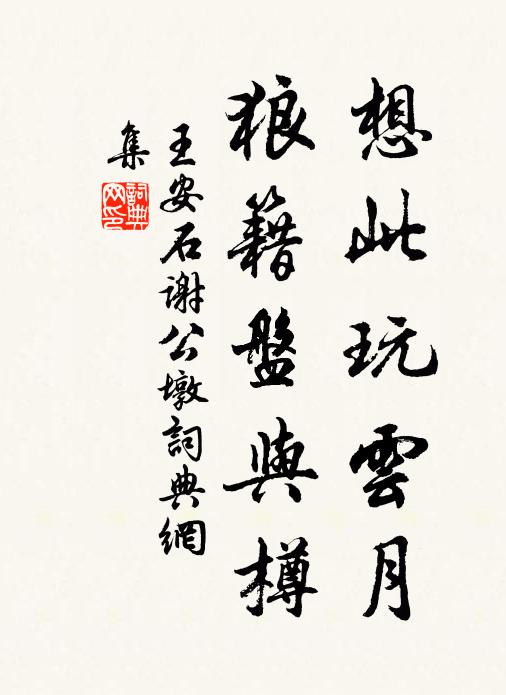 想此玩雲月
狼籍盤與樽
王安石謝公墩詞典網
集
詞典
网印